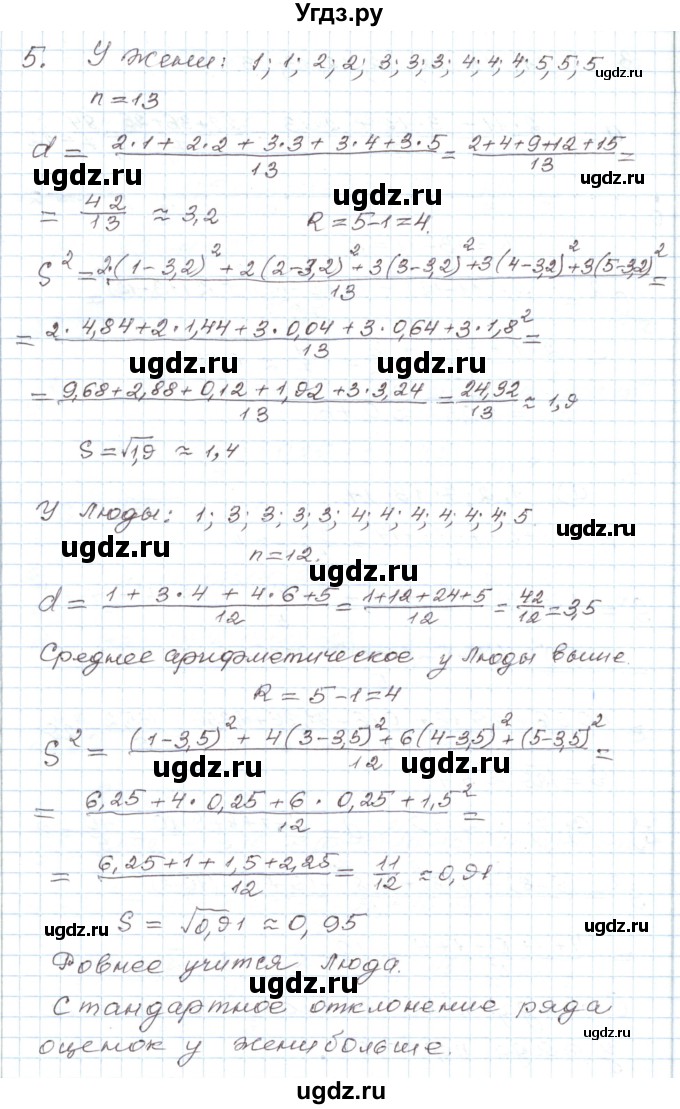 Угдз.ру
5. У Жени: 1; 1; 2; 2; 3; 3; 3; 4; 4; 4; 5; 5; 5
ugdz.ru
n = 13
d = (2·1 + 2·2 + 3·3 + 3·4 + 3·5)/13 = (2+4+9+12+15)/13 =
ugdz.ru ugdz.ru
= 42/13 ≈ 3,2 R = 5-1 = 4.
S² = (2·(1-3,2)² + 2(2-3,2)² + 3(3-3,2)² + 3(4-3,2)² + 3(5-3,2)²)/13 =
= (2·4,84 + 2·1,44 + 3·0,04 + 3·0,64 + 3·1,8²)/13 =
ugdz.ru ugdz.ru
= (9,68 + 2,88 + 0,12 + 1,92 + 3·3,24)/13 = 24,32/13 ≈ 1,9
S = √1,9 ≈ 1,4
У Люды: 1; 3; 3; 3; 3; 4; 4; 4; 4; 4; 4; 5
ugdz.ru
ugdz.ru
n = 12.
ugdz.ru
d = (1 + 3·4 + 4·6 + 5)/12 = (1+12+24+5)/12 = 42/12 = 3,5
Среднее арифметическое у Люды выше.
ugdz.ru
R = 5-1 = 4
S² = ((1-3,5)² + 4(3-3,5)² + 6(4-3,5)² + (5-3,5)²)/12 =
ugdz.ru ugdz.ru
= (6,25 + 4·0,25 + 6·0,25 + 1,5²)/12 =
= (6,25 + 1 + 1,5 + 2,25)/12 = 11/12 ≈ 0,91
S = √0,91 ≈ 0,95
ugdz.ru ugdz.ru ugdz.ru
Ровнее учится Люда.
ugdz.ru
Стандартное отклонение ряда
ugdz.ru
оценок у Жени больше.
ugdz.ru